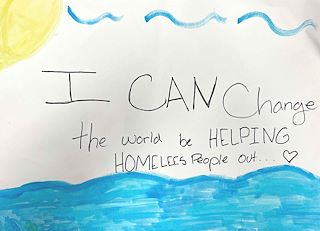 I CAN Change
the world be HELPING
HOMELEES People out... ♡